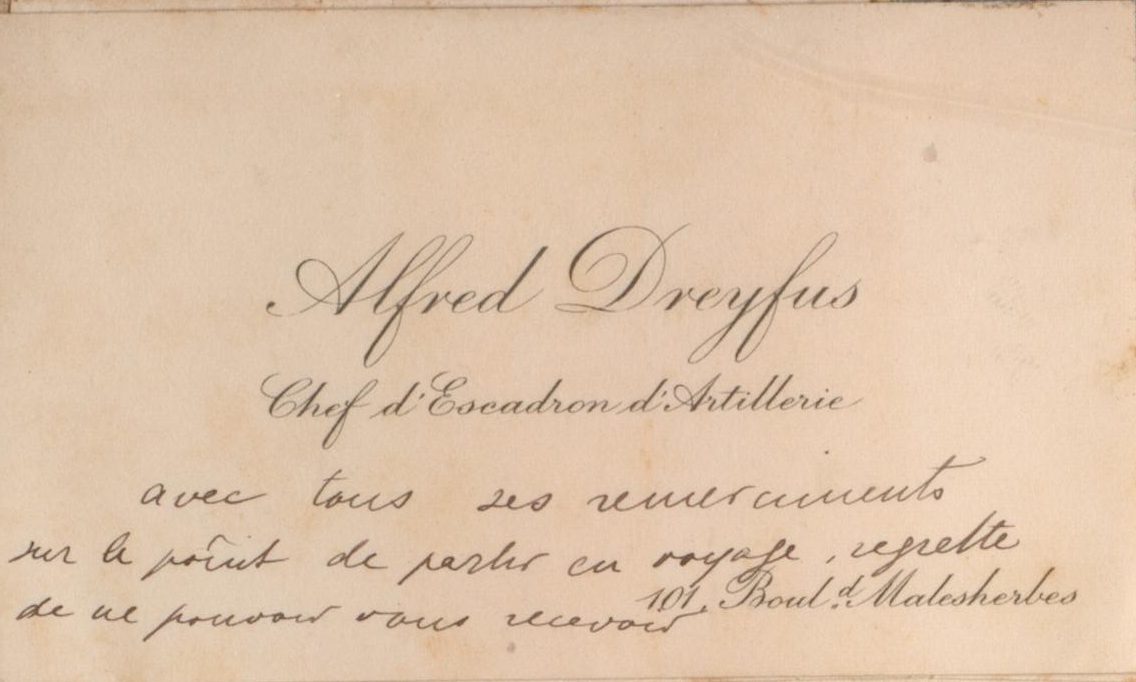 Alfred Dreyfus
Chef d'Escadron d'Artillerie
avec tous ses remerciments
sur le point de partir en voyage, regrette
101, Boul.d Malesherbes
de ne pouvoir vous recevoir